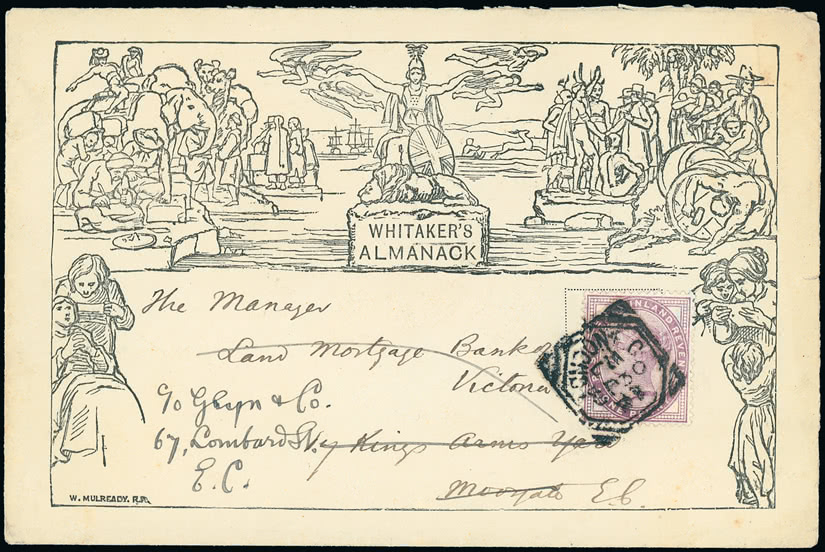 WHITAKER'S
ALMANACK
The Manager
INLAND REVE
Land Mortgage Bank of
Victoria
c/o Glyn & Co.
67, Lombard St. Kings Arms Yard
E.C.
Moorgate E.C.
W. MULREADY. R.A.